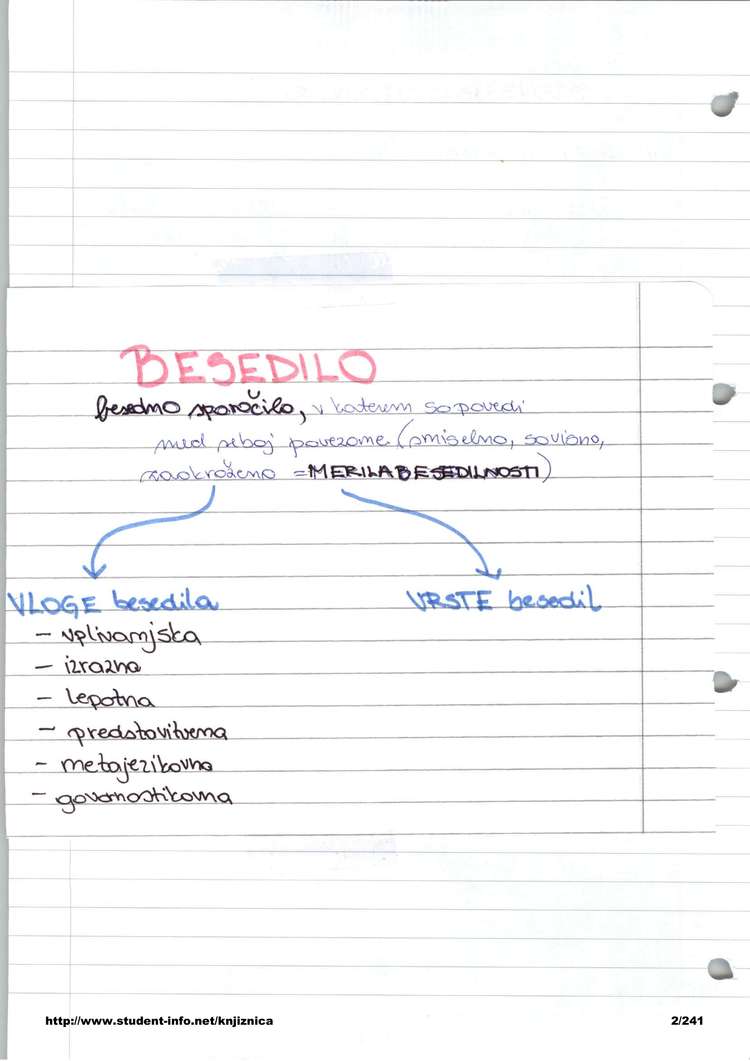 BESEDILO
besedno sporočilo, v katerem so povedi
med seboj povezane (smiselno, sovisno,
zaokroženo = MERILA BESEDILNOSTI)
VLOGE besedila VRSTE besedil
- vplivanjska
- izrazna
- lepotna
- predstavitvena
- metajezikovna
- govornostikovna
http://www.student-info.net/knjiznica 2/241